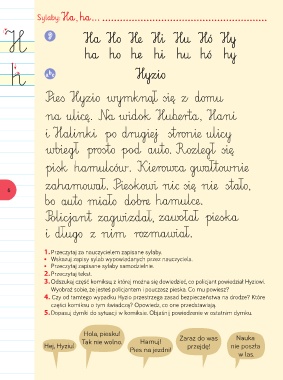 Sylaby Ha, ha...
H
h
Ha Ho He Hi Hu Hó Hy
ha ho he hi hu hó hy
Hyzio
Pies Hyzio wymknął się z domu
na ulicę. Na widok Huberta, Hani
i Halinki po drugiej stronie ulicy
wbiegł prosto pod auto. Rozległ się
pisk hamulców. Kierowca gwałtownie
zahamował. Pieskowi nic się nie stało,
bo auto miało dobre hamulce.
Policjant zagwizdał, zawołał pieska
i długo z nim rozmawiał.
1. Przeczytaj za nauczycielem zapisane sylaby.
• Wskazuj zapisy sylab wypowiadanych przez nauczyciela.
• Przeczytaj zapisane sylaby samodzielnie.
2. Przeczytaj tekst.
3. Odszukaj część komiksu, z której można się dowiedzieć, co policjant powiedział Hyziowi.
Wyobraź sobie, że jesteś policjantem i pouczasz pieska. Co mu powiesz?
4. Czy od tamtego wypadku Hyzio przestrzega zasad bezpieczeństwa na drodze? Które
części komiksu o tym świadczą? Opowiedz, co one przedstawiają.
5. Dopasuj dymki do sytuacji w komiksie. Objaśnij powiedzenie w ostatnim dymku.
Hej, Hyziu!
Hola, piesku!
Tak nie wolno.
Hamuj!
Pies na jezdni!
Zaraz do was
przejdę!
Nauka
nie poszła
w las.